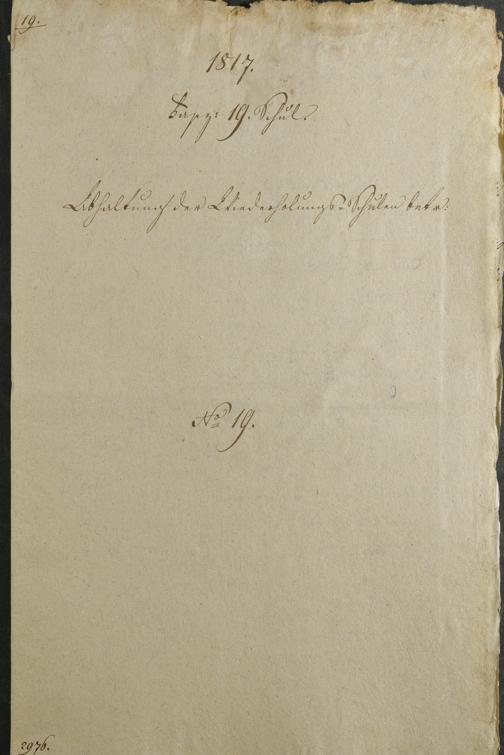 19.
1817.
Fasz: 19. Schul.
Abhaltung der Wiederholungs-Schulen betr:
No 19.
2976.